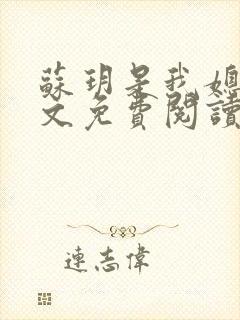 蘇玥是我媳
文免費閱讀
連志偉